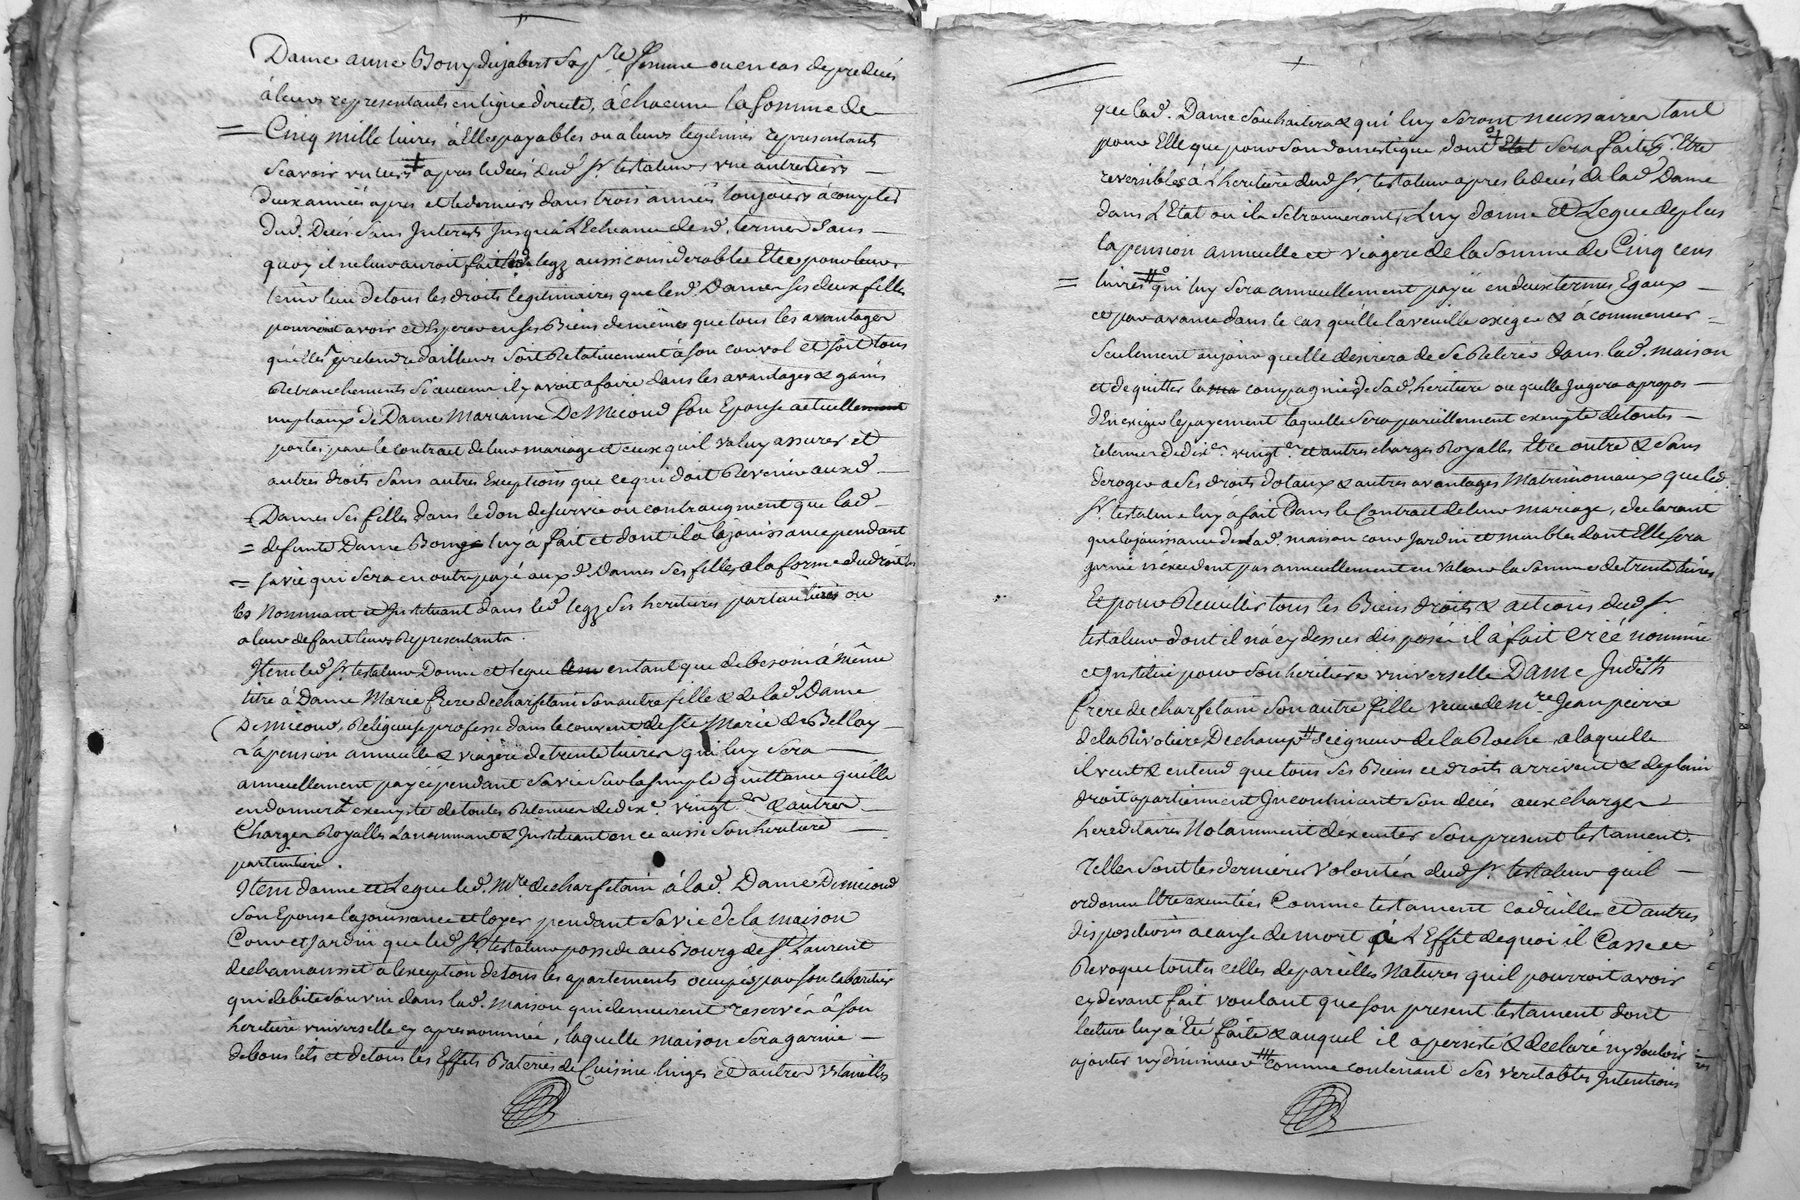 Dame anne Bony dujabert Sa pre. femme ou en cas de predeces
à leurs representants en ligne directe, à chacune la Somme de
Cinq mille livres à Elles payables ou a leurs legitimes representants
Scavoir un tiers apres le deces dud. Sr. testateur, une autre tiers
deux années apres et le derniers dans trois années toujours à compter
dud. Deces Sans Interests Jusqu'à L'Echeance desd. termes Sans
quoy il ne leur auroit fait led legz aussi considerable Et ce pour leur
tenir lieu de tous les droits legitimaires que lesd. Dames ses deux filles
pourroient avoir et Esperer en ses Biens de même que tous les avantages
qu'elles pretendre d'ailleurs Soit Relativement à son convol et Soit tous
Retranchements Si aucun il y avoit a faire dans les avantages & gains
nuptiaux de Dame Marianne De Micoud Son Epouse actuellement
portés par le contrat de leur mariage et ceux quil va luy assurer et
autres droits Sans autres Exceptions que ce qui doit Revenir aux d.
Dames Ses filles dans le don de survie ou contraugment que lad.
defunte Dame Bony luy à fait et dont il à la jouissance pendant
sa vie qui Sera en outre payé aux d. Dames Ses filles a la forme du droit
les Nommant et Instituant dans led. legz Ses heritieres particulieres ou
a leur defaut leurs Representants.
Item led. Sr. testateur Donne et legue en tant que de besoin à même
titre à Dame Marie frere de charfetain Son autre fille & de lad. Dame
De micoud, Religieuse professe dans le couvent de Ste Marie de Bellay
La pension annuelle & viagere de trente livres qui luy Sera
annuellement payée pendant Sa vie Sur la Simple quittance qu'elle
en donnera exempte de toutes Retenues de dixe. vingte. & autres
Charges Royalles La nommant & Instituant en ce aussi Son heritiere
particuliere.
Item donne et Legue led. Mre. de charfetain à lad. Dame De micoud
Son Epouse la jouissance et loyer pendant Sa vie de la maison
Cour et Jardin que led. Sr. testateur possede au Bourg de St. Laurent
de chamousset à l'exception de tous les apartements occupés par Son Cabartier
qui debite Son vin dans lad. Maison qui demeurent reservés à Son
heritiere universelle cy apres nommée, laquelle maison Sera garnie
de bons lits et de tous les Effets Bateries de Cuisine linges et autres Utencilles
que lad. Dame Souhaitera & qui luy Seront necessaires tant
pour Elle que pour Son domestique, dont Etat Sera fait pr. Etre
reversibles à L'heritiere dud. Sr. testateur apres le deces de lad. Dame
dans L'Etat ou ils Se trouveront, Luy donne et Legue de plus
la pension annuelle et viagere de la Somme de Cinq cens
livres qui luy Sera annuellement payée en deux termes Egaux
et par avance dans le cas qu'elle la veuille exiger & à commencer
Seulement au jour quelle desirera de Se Retirer dans lad. maison
et de quitter la compagnie de Sad. heritiere ou quelle Jugera apropos
d'En exiger le payement laquelle Sera pareillement exempte de toutes
retenues de dixe. vingte. et autres charges Royalles Et ce outre & Sans
deroger a Ses droits dotaux & autres avantages Matrimoniaux que led.
Sr. testateur luy à fait Dans le Contract de leur mariage, declarant
que la jouissance de lad. maison cour Jardin et meubles dont Elle Sera
garnie n'excedent pas annuellement en valeur la Somme de trente livres
Et pour Recuillir tous les Biens droits & actions dud. Sr.
testateur dont il n'a cy dessus disposés il à fait créé nommée
et Institué pour Son heritiere universelle Dame Judith
frere de charfetain Son autre fille veuve de Mre Jean pierre
de la Rivoliere Dechamp Seigneur de la Roche a laquelle
il veut & entend que tous Ses Biens et droits arrivent & de plain
droit apartiennent Incontinant Son deces aux charges
hereditaires Notamment d'executer Son present testament.
Telles Sont les dernieres Volontés dud. Sr. testateur quil
ordonne Etre executées Comme testament codicille et autres
dispositions a cause de mort à L'Effet de quoi il Casse et
Revoque toutes celles de pareilles Natures quil pourroit avoir
cy devant fait voulant que Son present testament dont
lecture luy à été faite & auquel il a persisté & declaré ny Vouloir
ajouter ny diminuer Comme contenant Ses veritables Intentions